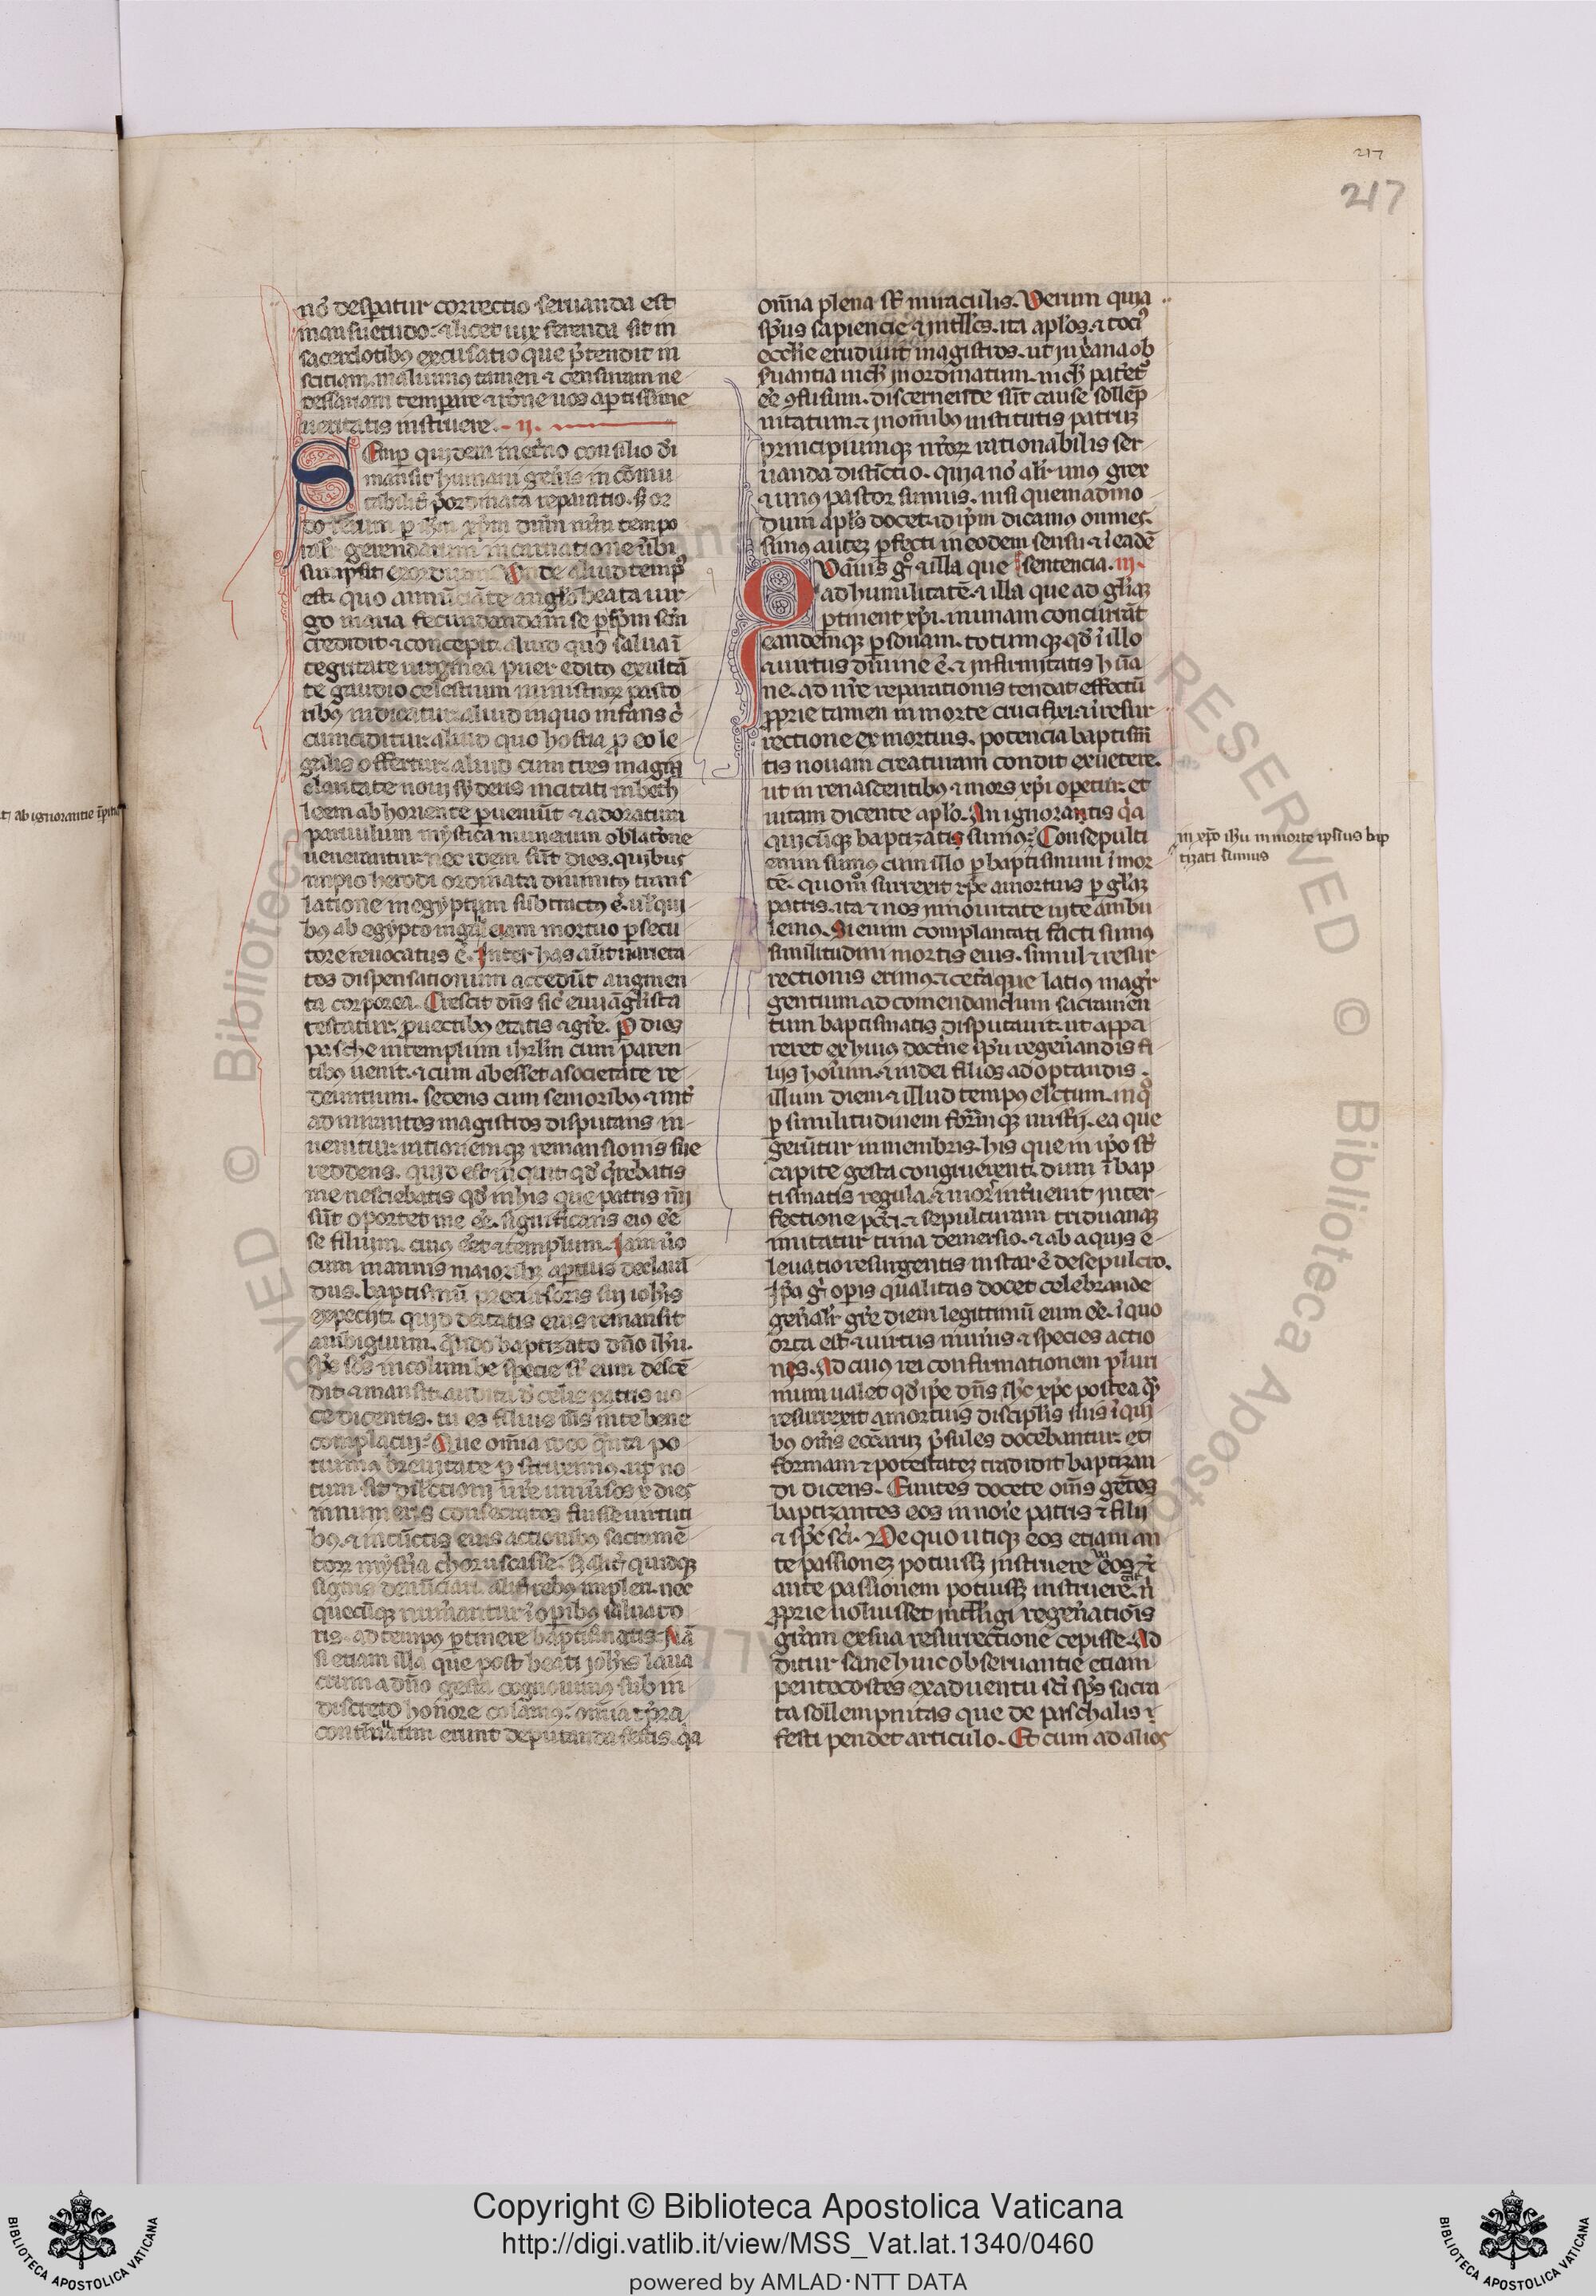 217
217
nō desperatur correctio seruanda est
mansuetudo. ⁊ licet uix ferenda sit in
sacerdotibꝰ excusatio que p̄tendit in
scitiam. maluimꝰ tamen ⁊ censuram ne
cessariam temperare ⁊ rōne uos apertissime
ueritatis instruere. .ij.
Semꝑ quidem in etn̄o consilio dī
mansit humani geñis incōmu
tabilit̄ p̄ordinata reparatio. sꝫ or
do rerum ꝑ ih̄m xp̄m dn̄m nr̄m tempo
ralr̄ gerendarum in carnatione ūbi
sumpsit exordium. Vnde aliud tempꝰ
est. quo annūciāte angl̄o beata uir
go maria fecundandam se ꝑ sp̄m sc̄m
credidit ⁊ concepit. aliud quo salua ī
tegritate uirginea puer editꝰ exultā
te gaudio celestium ministroꝝ pasto
ribꝰ indicatur. aliud in quo infans c̄
cumciditur. aliud quo hostia ꝓ eo le
galis offertur. aliud cum tres magi
claritate noui syderis incitati in beth
leem ab horiente ꝑuenūt ⁊ adoratum
paruulum mystica munerum oblatōne
uenerantur. nec idem sūt dies. quibus
impio herodi ordinata diuinitꝰ trans
latione in egyptum subtractꝰ ē. uł qui
bꝰ ab egypto in galileam mortuo ꝑsecu
tore reuocatus ē. Inter has aūt uarieta
tes dispensationum accedūt augmen
ta corporea. Crescit dn̄s sic̄ euuāglista
testatur. ꝓuectibꝰ etatis ⁊ gr̄e. ꝑ dies
pasche in templum ihrlm̄ cum paren
tibꝰ uenit. ⁊ cum abesset a societate re
deuntium. sedens cum senioribꝰ ⁊ int̄
admirantes magistros disputans in
uenitur. rationemqꝫ remansionis sue
reddens. quid est inquit qd̄ q̄rebatis
me nesciebatis qd̄ in his que patris m̄i
sūt oportet me ēē. significans eiꝰ ēē
se filium. cuiꝰ ēēt ⁊ templum. Iam ūo
cum in annis maioribꝫ aꝑtius declarā
dus. baptismū precursoris sui ioh̄is
expeciit. quid deitatis eius remansit
ambiguum. qn̄do baptizato dn̄o ih̄u.
sp̄c sc̄s in columbe specie sr̄ eum descē
dit. ⁊ mansit. audita d̄ celis patris uo
ce dicentis. tu es filius m̄s in te bene
complacui. Que om̄ia ideo q̄nta po
tuimꝰ breuitate ꝑstrinximꝰ. ut no
tum sit dilectioni ur̄e uniūsos xp̄i dies
innumeris consecratos fuisse uirtuti
bꝰ. ⁊ in cūctis eius actionibꝰ sacramē
torꝝ mysteria choruscasse. sꝫ alit̄ quidqꝫ
signis denūciari. alit̄ rebꝰ impleri. nec
quecūqꝫ numerantur ī oꝑibꝰ saluato
ris. ad tempꝰ ꝑtinere baptismatis. Nā
si etiam illa que post beati ioh̄is laua
crum a dn̄o gesta cognouimꝰ sub in
discreto honore colamꝰ. om̄ia tp̄ora
continuatim erunt deputanda festis. q̄a
om̄ia plena sūt miraculis. Verum quia
sp̄us sapiencie ⁊ intll̄cs. ita apl̄os. ⁊ tociꝰ
eccl̄ie erudiuit magistros. ut in xp̄ana ob
seruantia nich̄ inordinatum. nich̄ pateret᷒
ēē ꝯfusum. discernende sūt cause sollēp
nitatum. ⁊ in om̄ibꝰ institutis patruꝫ
principiumqꝫ nr̄oꝝ rationabilis ser
uanda distīctio. quia nō alr̄ unꝰ grex
⁊ unꝰ pastor sumus. nisi quemadmo
dum apl̄s docet. id ip̄m dicamꝰ omnes.
simꝰ auteꝫ ꝑfecti in eodem sensu ⁊ ī eadē
sentencia. iij.
Quāuis gͦ ⁊ illa que
ad humilitatē. ⁊ illa que ad gl̄iaꝫ
ꝑtinent xp̄i. in unam concurrāt
eandemqꝫ ꝑsonam. totumqꝫ qd̄ ī illo
⁊ uirtus diuine ē. ⁊ infirmitatis hūa
ne. ad nr̄e reparationis tendat effectū
ꝓprie tamen in morte crucifixi. ⁊ ī resur
rectione ex mortuis. potencia baptism̄
tis nouam creaturam condit ex uetere.
ut in renascentibꝰ ⁊ mors xp̄i operetur. et
uitam dicente apl̄o. An ignorantis q̄a
quicūqꝫ baptizatis sumꝰ. Consepulti
enim sumꝰ cum illo ꝑ baptismum ī mor
tē. quom̄ surrexit xp̄c a mortuis ꝑ gl̄iaꝫ
patris. ita ⁊ nos in nouitate uite ambu
lemꝰ. Si enim complantati facti sumꝰ
similitudini mortis eius. simul ⁊ resur
rectionis erimꝰ. ⁊ cetera que latiꝰ magr̄
gentium ad comendandum sacramen
tum baptismatis disputauit. ut appa
reret ex huiꝰ doctrine sp̄u regenerandis fi
liis hoīum. ⁊ in dei filios adoptandis.
illum diem ⁊ illud tempꝰ el̄ctum. in q̊
ꝑ similitudinem formāqꝫ mist̄ij. ea que
gerūtur in membris. his que in ip̄o sūt
capite gesta congruerent. dum ī bap
tismatis regula. ⁊ mors int̄uenit inter
fectione pctī. ⁊ sepulturam triduanaꝫ
imitatur trina demersio. ⁊ ab aquis e
leuatio resurgentis instar ē de sepulcro.
Ip̄a gͦ oꝑis qualitas docet celebrande
gen̄alr̄ gr̄e diem legittimū eum ēē. ī quo
orta est ⁊ uirtus muneris ⁊ species actio
nis. Ad cuiꝰ rei confirmationem pluri
mum ualet qd̄ ip̄e dn̄s ih̄c xp̄c postea q̄
resurrexit a mortuis discipl̄is suis ī qui
bꝰ om̄s ecc̄aruꝫ p̄sules docebantur et
formam ⁊ potestateꝫ tradidit baptizan
di dicens. Euntes docete om̄s gētes
baptizantes eos in noīe patris ⁊ filii
⁊ sp̄c sc̄i. De quo utique eos etiam an
te passioneꝫ potuissꝫ instruere eos ⁊
ante passionem potuissꝫ instruere. n̄
ꝓprie uoluisset intll̄igi regen̄ationis
gr̄am ex sua resurrectione cepisse. Ad
ditur sane huic obseruantie etiam
pentecostes ex aduentu sc̄i sp̄s sacra
ta sollempnitas que de paschalis
festi pendet articulo. Et cum ad alios
in xp̄o ih̄u in morte ipsius bap
tizati sumus
ab ignorantie
Copyright © Biblioteca Apostolica Vaticana
http://digi.vatlib.it/view/MSS_Vat.lat.1340/0460
powered by AMLAD·NTT DATA
BIBLIOTECA APOSTOLICA VATICANA
BIBLIOTECA APOSTOLICA VATICANA